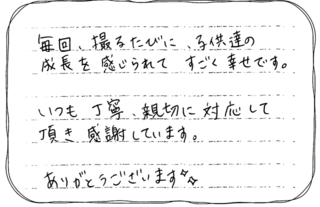 毎回、撮るたびに、子供達の
成長を感じられて すごく幸せです。
いつも 丁寧、親切に対応して
頂き 感謝しています。
ありがとうございます✨